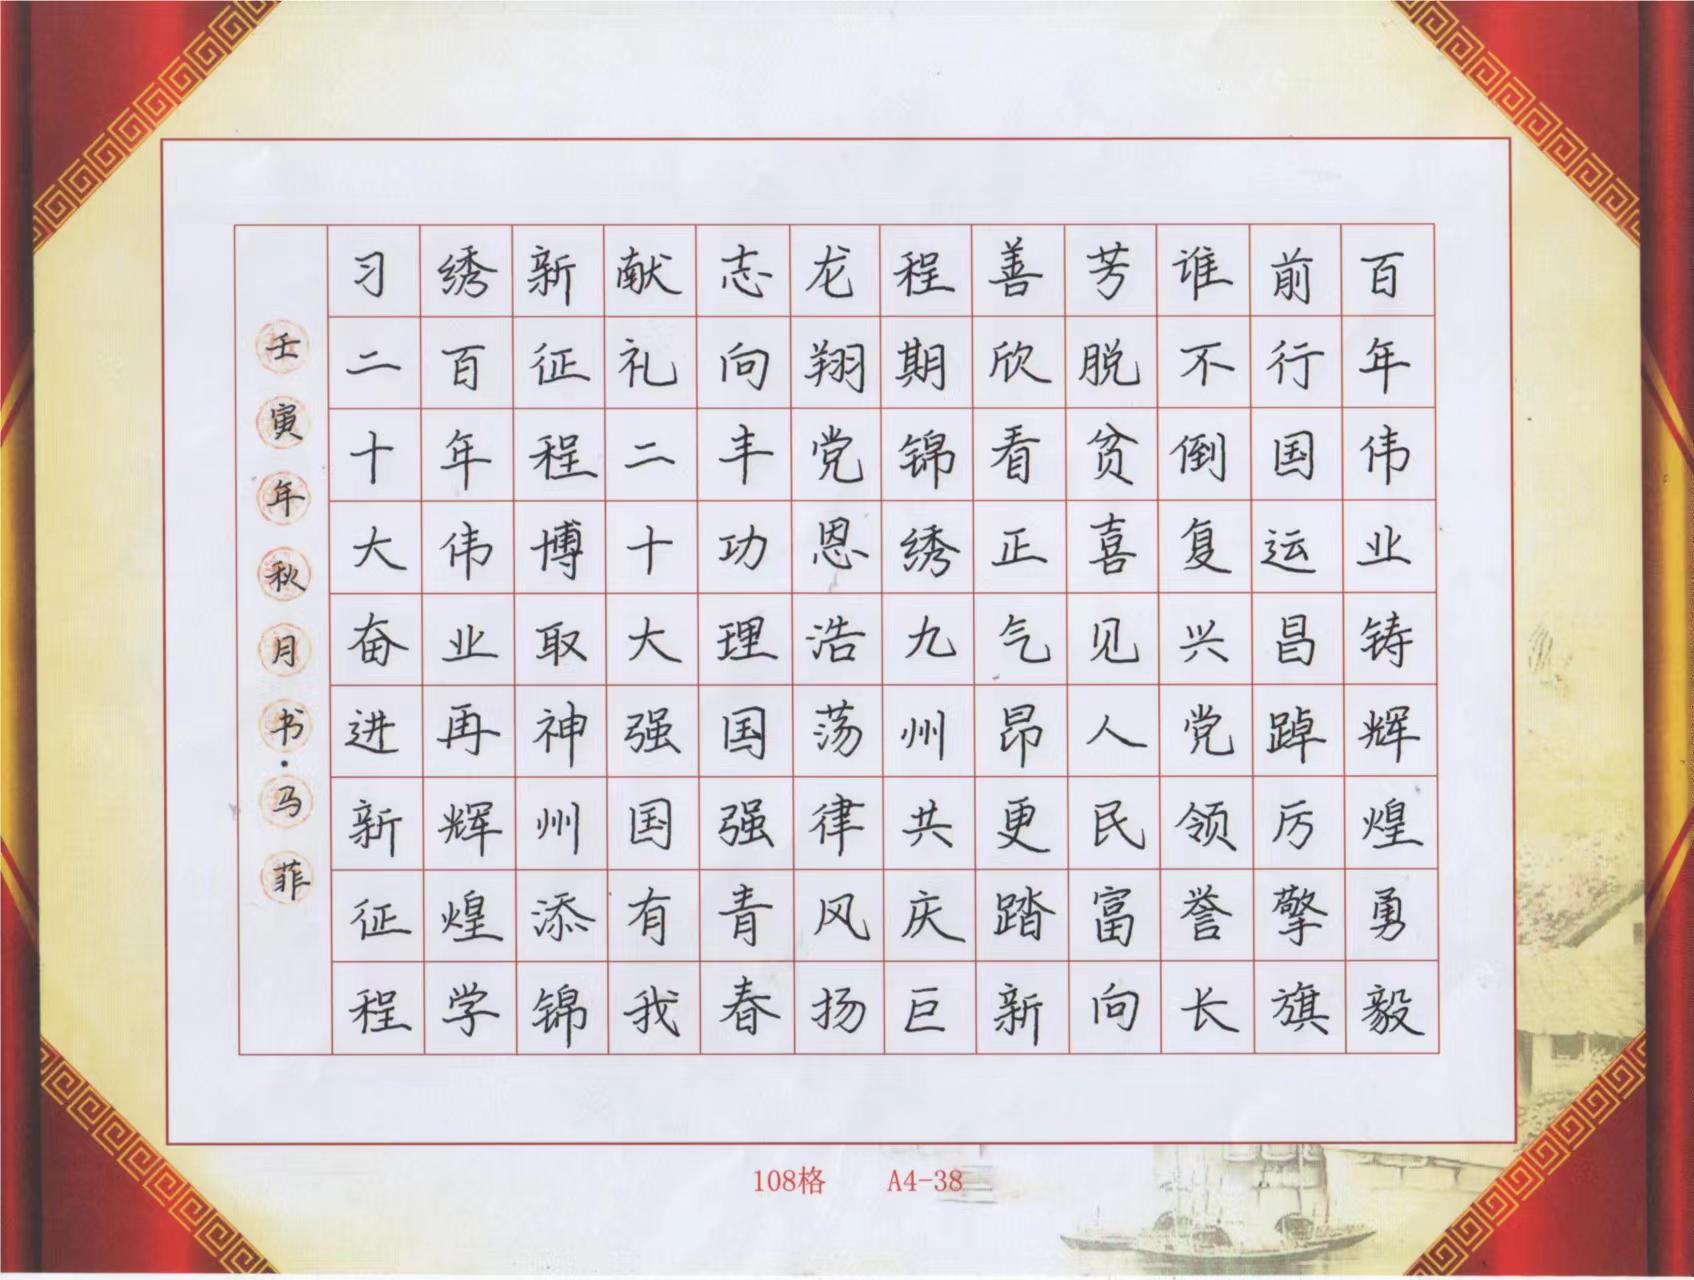 百年伟业铸辉煌勇毅
前行国运昌踔厉擎旗
谁不倒复兴党领誉长
芳脱贫喜见人民富向
善欣看正气昂更踏新
程期锦绣九州共庆巨
龙翔党恩浩荡律风扬
志向丰功理国强青春
献礼二十大强国有我
新征程博取神州添锦
绣百年伟业再辉煌学
习二十大奋进新征程
壬寅年秋月书·马菲
108格 A4-38